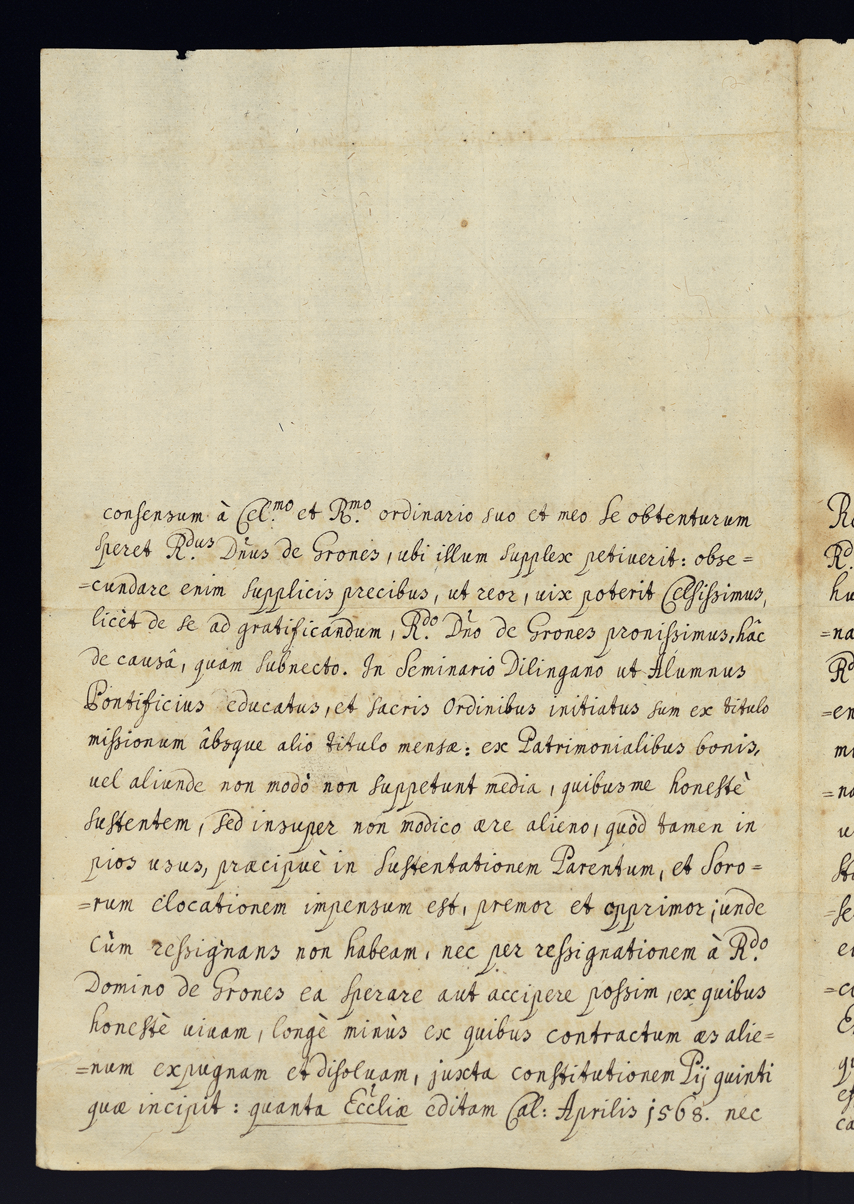 consensum à Cel.mo et R.mo ordinario suo et meo se obtenturum
speret R.dus Dn̄us de Grones, ubi illum supplex petiverit: obse=
=cundare enim supplicis precibus, ut reor, vix poterit Celsissimus,
licèt de se ad gratificandum, R.do Dn̄o de Grones pronissimus, hâc
de causâ, quam subnecto. In Seminario Dilingano ut Alumnus
Pontificius educatus, et sacris Ordinibus initiatus sum ex titulo
missionum âbsque alio titulo mensæ: ex Patrimonialibus bonis,
vel aliunde non modò non suppetunt media, quibus me honestè
sustentem, sed insuper non modico ære alieno, quòd tamen in
pios usus, præcipuè in sustentationem Parentum, et Soro=
=rum elocationem impensum est, premor et opprimor; unde
cùm ressignans non habeam, nec per ressignationem à R.do
Domino de Grones ea sperare aut accipere possim, ex quibus
honestè vivam, longè minùs ex quibus contractum æs alie=
=num expugnam et disolvam, juxta constitutionem Pij quinti
quæ incipit: quanta Eccliæ editam Cal: Aprilis 1568. nec
R.d
hu
=na
R.d
=en
mi
=na
u
=se
=co
E
ca